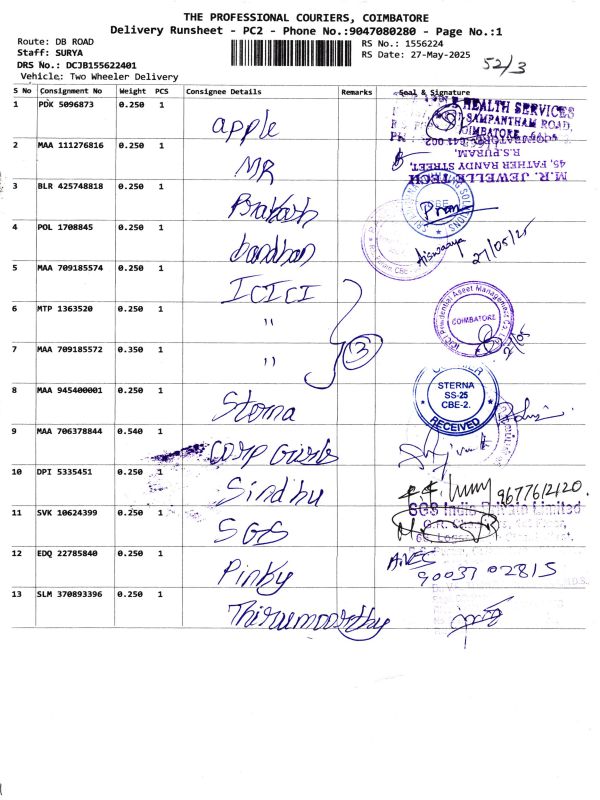 THE PROFESSIONAL COURIERS, COIMBATORE
Delivery Runsheet - PC2 - Phone No.:9047080280 - Page No.:1
Route: DB ROAD
Staff: SURYA
DRS No.: DCJB155622401
Vehicle: Two Wheeler Delivery
RS No.: 1556224
RS Date: 27-May-2025
52/3
S No Consignment No Weight PCS Consignee Details Remarks Seal & Signature
1 PDK 5096873 0.250 1 apple
HEALTH SERVICES
SAMPANTHAM ROAD,
COIMBATORE
2 MAA 111276816 0.250 1 MR
M.R. JEWELLE TECH
45, FATHER RANDY STREET,
R.S.PURAM,
3 BLR 425748818 0.250 1 Prakash
4 POL 1708845 0.250 1 bandhan Aiswarya 27/05/25
5 MAA 709185574 0.250 1 ICICI
6 MTP 1363520 0.250 1 "
COIMBATORE
7 MAA 709185572 0.350 1 " 3
8 MAA 945400001 0.250 1 Sterna
STERNA
SS-25
CBE-2.
RECEIVED
9 MAA 706378844 0.540 1 Corp Girls
10 DPI 5335451 0.250 1 Sindhu 9677612120.
11 SVK 10624399 0.250 1 SGS
SGS India Private Limited
12 EDQ 22785840 0.250 1 Pinky 90037 02815
13 SLM 370893396 0.250 1 Thirumoorthy